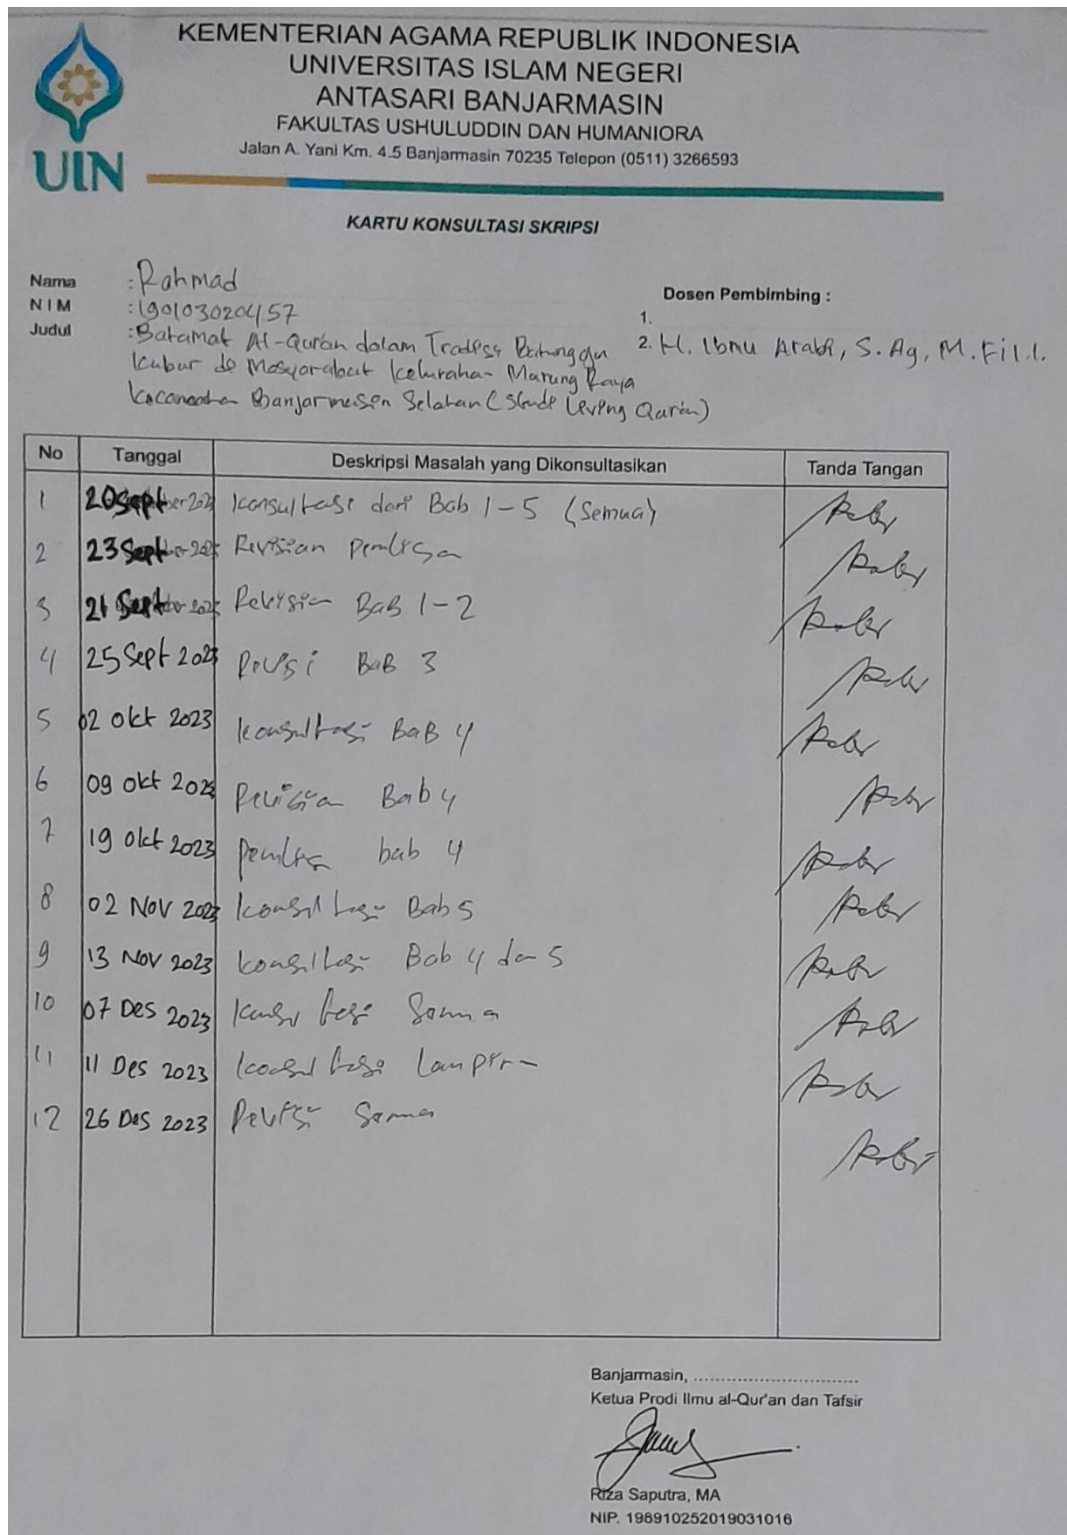 KEMENTERIAN AGAMA REPUBLIK INDONESIA
UNIVERSITAS ISLAM NEGERI
ANTASARI BANJARMASIN
FAKULTAS USHULUDDIN DAN HUMANIORA
Jalan A. Yani Km. 4.5 Banjarmasin 70235 Telepon (0511) 3266593
UIN
KARTU KONSULTASI SKRIPSI
Nama : Rahmad
NIM : 190103020457
Judul : Batamat Al-Qur'an dalam Tradisi Batunggu
Kubur di Masyarakat Kelurahan Murung Raya
Kecamatan Banjarmasin Selatan (Studi Living Qur'an)
Dosen Pembimbing :
1.
2. H. Ibnu Arabi, S. Ag, M. Fil.I.
No Tanggal Deskripsi Masalah yang Dikonsultasikan Tanda Tangan
1 20 Sept Konsultasi dari Bab 1-5 (Semua)
2 23 Sept Revisian
3 21 Sept Revisian BaB 1-2
4 25 Sept 2023 Revisi BaB 3
5 02 Okt 2023 Konsultasi BaB 4
6 09 Okt 2023 Revisian Bab 4
7 19 Okt 2023 bab 4
8 02 Nov 2023 Konsultasi Bab 5
9 13 Nov 2023 Konsultasi Bab 4 dan 5
10 07 Des 2023 Konsultasi Semua
11 11 Des 2023 Konsultasi Lampiran
12 26 Des 2023 Revisi Semua
Banjarmasin, ..............................
Ketua Prodi Ilmu al-Qur'an dan Tafsir
Riza Saputra, MA
NIP. 198910252019031016